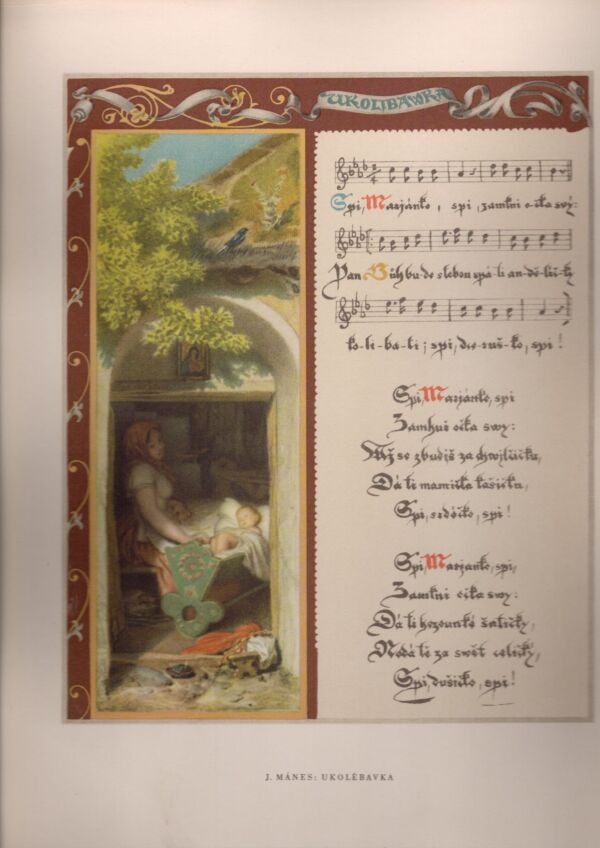 UKOLIBAWKA
Spi, Marjánko, spi, zamkni o-čka swy:
Pan Bůh bu-de s tebou spá-ti an-dě-líč-ky
ko-li-ba-ti; spi, dce-ruš-ko, spi!
Spi, Marjánko, spi
Zamhuř očka swy:
Až se zbudíš za chwjlčičku,
Dá ti mamička kašičku,
Spi, srdéčko, spi!
Spi, Marjanko, spi,
Zamkni očka swy:
Dá ti hezounké šatičky,
Nedá tě za swět celičky,
Spi, dušičko, spi!
J. MÁNES: UKOLÉBAVKA